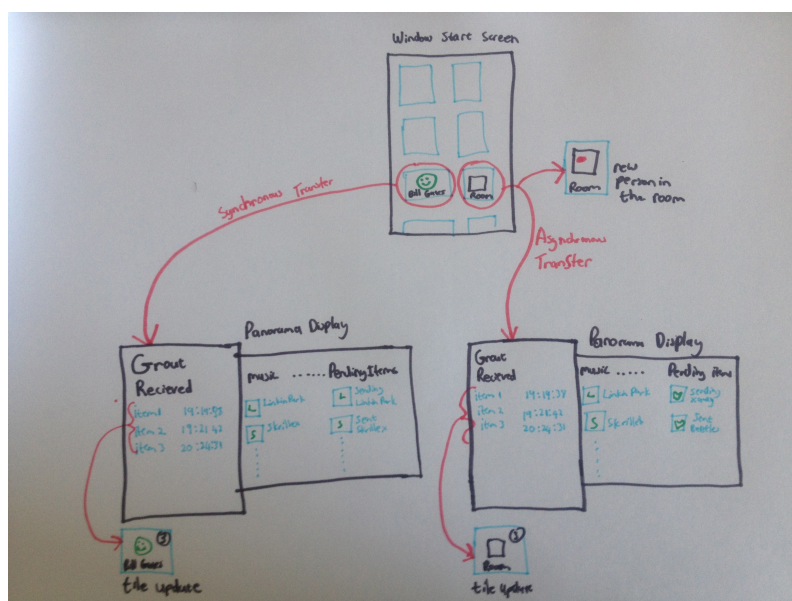 Window Start Screen
Bill Gates
Room
Room
new
person in
the room
Synchronous Transfer
Asynchronous
Transfer
Panorama Display
Grout
Recieved
item 1
item 2 19:21:42
item 3 20:24:31
music ...... Pending Items
L Linkin Park
L Sending
Linkin Park
S Skrillex
S Sent
Skrillex
Bill Gates
3
tile update
Panorama Display
Grout
Recieved
item 1 19:19:38
item 2 19:21:42
item 3 20:24:31
music ..... Pending items
L Linkin Park
Sending
S Skrillex
Sent
Room
tile update